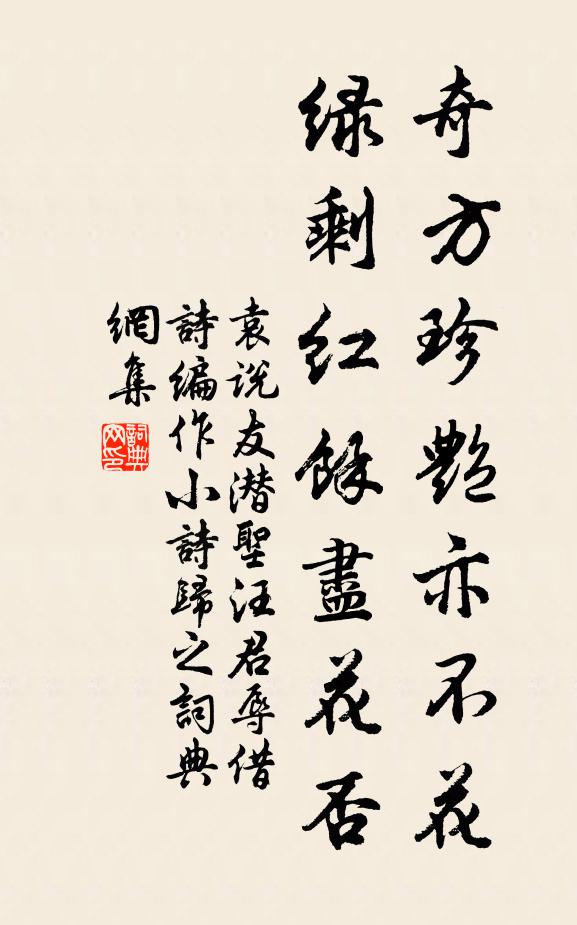 奇方珍艷亦不花
綠剩紅餘盡花否
袁說友潛聖汪君辱借
詩編作小詩歸之詞典
網集
詞典網印